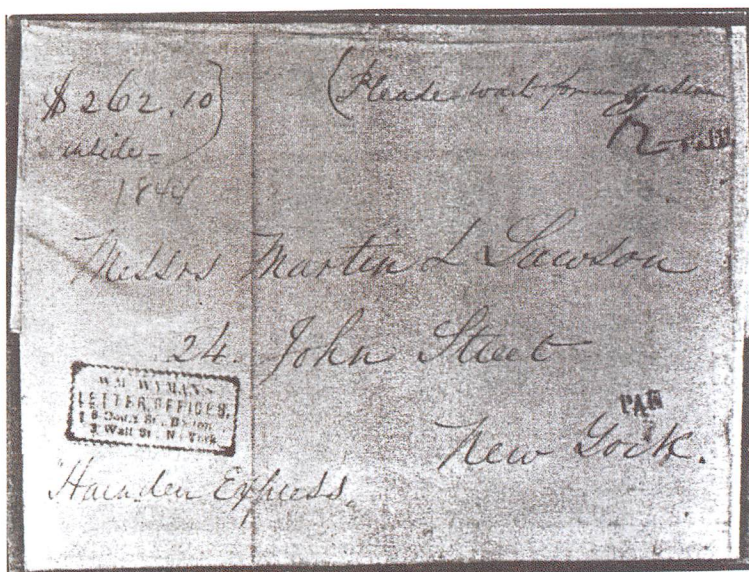 $262.10
inside
1844
(Please wait for
12
Messrs Martin & Lawson
24. John Street
New York.
PAID
WM. WYMAN'S
LETTER OFFICES,
Court St. Boston
3 Wall St. N. York
Harnden Express.